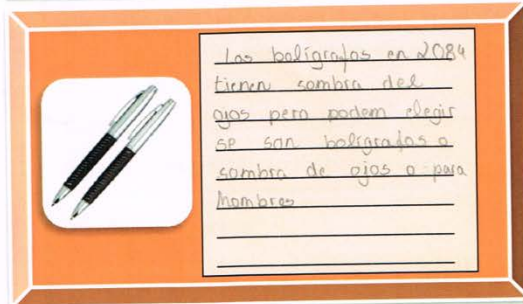 Los bolígrafos en 2084
tienen sombra del
ojos pero podem elegir
se son bolígrafos o
sombra de ojos o para
hombres